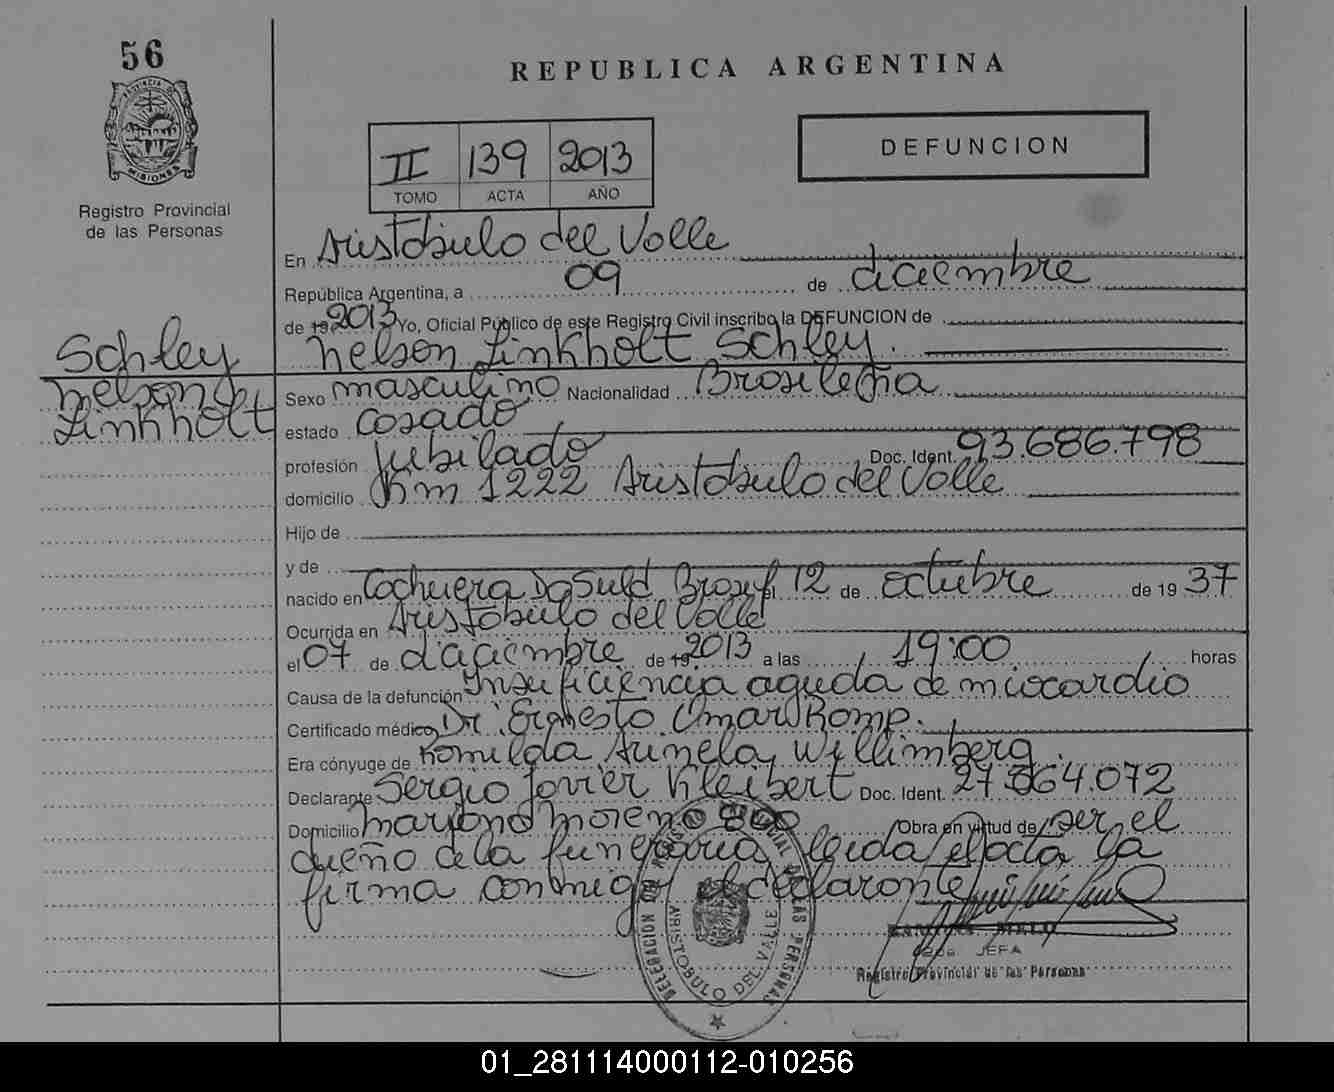 56
REPUBLICA ARGENTINA
PROVINCIA DE
MISIONES
Registro Provincial
de las Personas
II 139 2013
TOMO ACTA AÑO
DEFUNCION
En Aristobulo del Valle
República Argentina, a 09 de diciembre
de 19 2013 Yo, Oficial Público de este Registro Civil inscribo la DEFUNCION de
Schley
Nelson
Linkholt
Nelson Linkholt Schley.
Sexo masculino Nacionalidad Brasileña
estado casado
profesión Jubilado Doc. Ident. 93.686.798
domicilio Km 1222 Aristobulo del Valle
Hijo de
y de
nacido en Cachuera Do Suld Brasil el 12 de octubre de 19 37
Ocurrida en Aristobulo del Valle
el 07 de diciembre de 19 2013 a las 19:00 horas
Causa de la defunción Insuficiencia aguda de miocardio
Certificado médico Dr. Ernesto Omar Romp.
Era cónyuge de Romilda Willimberg.
Declarante Sergio Javier Kleibert Doc. Ident. 27.864.072
Domicilio Mariano Moreno 800 Obra en virtud de ser el
dueño de la funeraria, leida el acta la
firma conmigo el declarante
DELEGACION DEL REGISTRO PROVINCIAL DE LAS PERSONAS
ARISTOBULO DEL VALLE
MELO
JEFA
Registro Provincial de las Personas
01_281114000112-010256